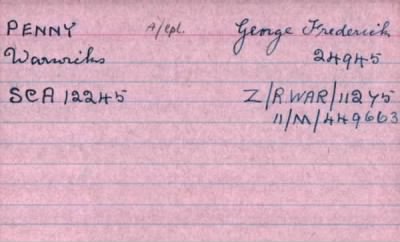 PENNY A/Cpl. George Frederick
Warwicks 24945
SCA 12245 Z/R.WAR/11245
11/M/449663